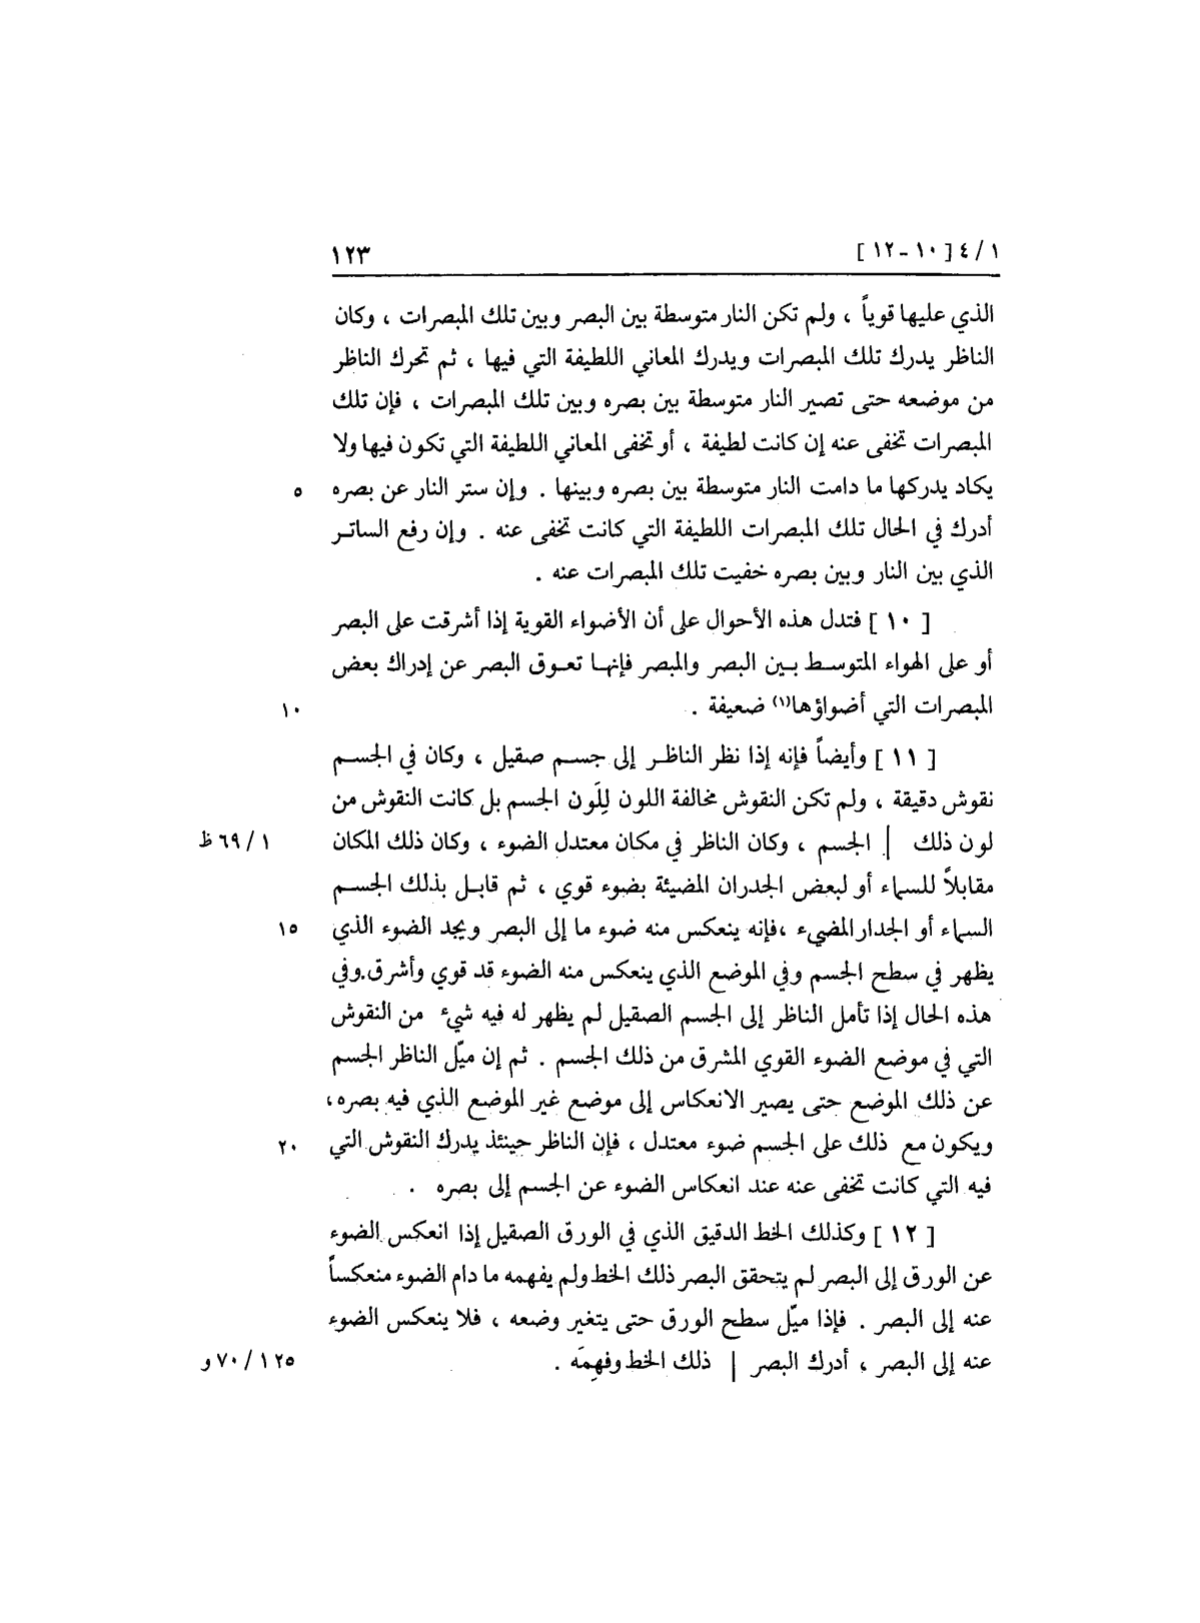 ١ / ٤ [ ١٠ - ١٢ ] ١٢٣
الذي عليها قوياً ، ولم تكن النار متوسطة بين البصر وبين تلك المبصرات ، وكان
الناظر يدرك تلك المبصرات ويدرك المعاني اللطيفة التي فيها ، ثم تحرك الناظر
من موضعه حتى تصير النار متوسطة بين بصره وبين تلك المبصرات ، فإن تلك
المبصرات تخفى عنه إن كانت لطيفة ، أو تخفى المعاني اللطيفة التي تكون فيها ولا
يكاد يدركها ما دامت النار متوسطة بين بصره وبينها . وإن ستر النار عن بصره ٥
أدرك في الحال تلك المبصرات اللطيفة التي كانت تخفى عنه . وإن رفع الساتـر
الذي بين النار وبين بصره خفيت تلك المبصرات عنه .
[ ١٠ ] فتدل هذه الأحوال على أن الأضواء القوية إذا أشرقت على البصر
أو على الهواء المتوسـط بـين البصر والمبصر فإنهـا تعـوق البصر عن إدراك بعض
المبصرات التي أضواؤها(١) ضعيفة . ١٠
[ ١١ ] وأيضاً فإنه إذا نظر الناظـر إلى جسـم صقيل ، وكان في الجسـم
نقوش دقيقة ، ولم تكن النقوش مخالفة اللون لِلَون الجسم بل كانت النقوش من
لون ذلك | الجسم ، وكان الناظر في مكان معتدل الضوء ، وكان ذلك المكان ١ / ٦٩ ظ
مقابلاً للسماء أو لبعض الجدران المضيئة بضوء قوي ، ثم قابـل بذلك الجسـم
السماء أو الجدار المضيء ،فإنه ينعكس منه ضوء ما إلى البصر ويجد الضوء الذي ١٥
يظهر في سطح الجسم وفي الموضع الذي ينعكس منه الضوء قد قوي وأشرق.وفي
هذه الحال إذا تأمل الناظر إلى الجسم الصقيل لم يظهر له فيه شيء من النقوش
التي في موضع الضوء القوي المشرق من ذلك الجسم . ثم إن ميّل الناظر الجسم
عن ذلك الموضع حتى يصير الانعكاس إلى موضع غير الموضع الذي فيه بصره،
ويكون مع ذلك على الجسم ضوء معتدل ، فإن الناظر حينئذ يدرك النقوش التي ٢٠
فيه التي كانت تخفى عنه عند انعكاس الضوء عن الجسم إلى بصره .
[ ١٢ ] وكذلك الخط الدقيق الذي في الورق الصقيل إذا انعكس الضوء
عن الورق إلى البصر لم يتحقق البصر ذلك الخط ولم يفهمه ما دام الضوء منعكساً
عنه إلى البصر . فإذا ميّل سطح الورق حتى يتغير وضعه ، فلا ينعكس الضوء
عنه إلى البصر ، أدرك البصر | ذلك الخط وفهِمَه . ٢٥ ١ / ٧٠ و